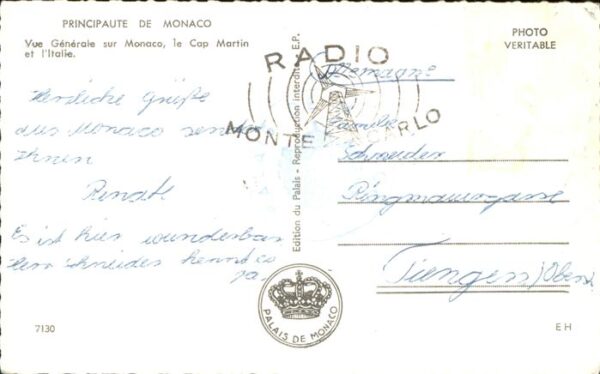 PRINCIPAUTE DE MONACO
Vue Générale sur Monaco, le Cap Martin
et l'Italie.
Herzliche Grüße
aus Monaco sendet
Ihnen
Renate
Es ist hier wunderbar
Herr Schneider kennt es
ja.
7130
Edition du Palais - Reproduction interdite - E.P.
RADIO
MONTE CARLO
PALAIS DE MONACO
PHOTO
VERITABLE
Allemagne
Familie
Schneider
Ringmauergasse
Tiengen/Oberrh
E H